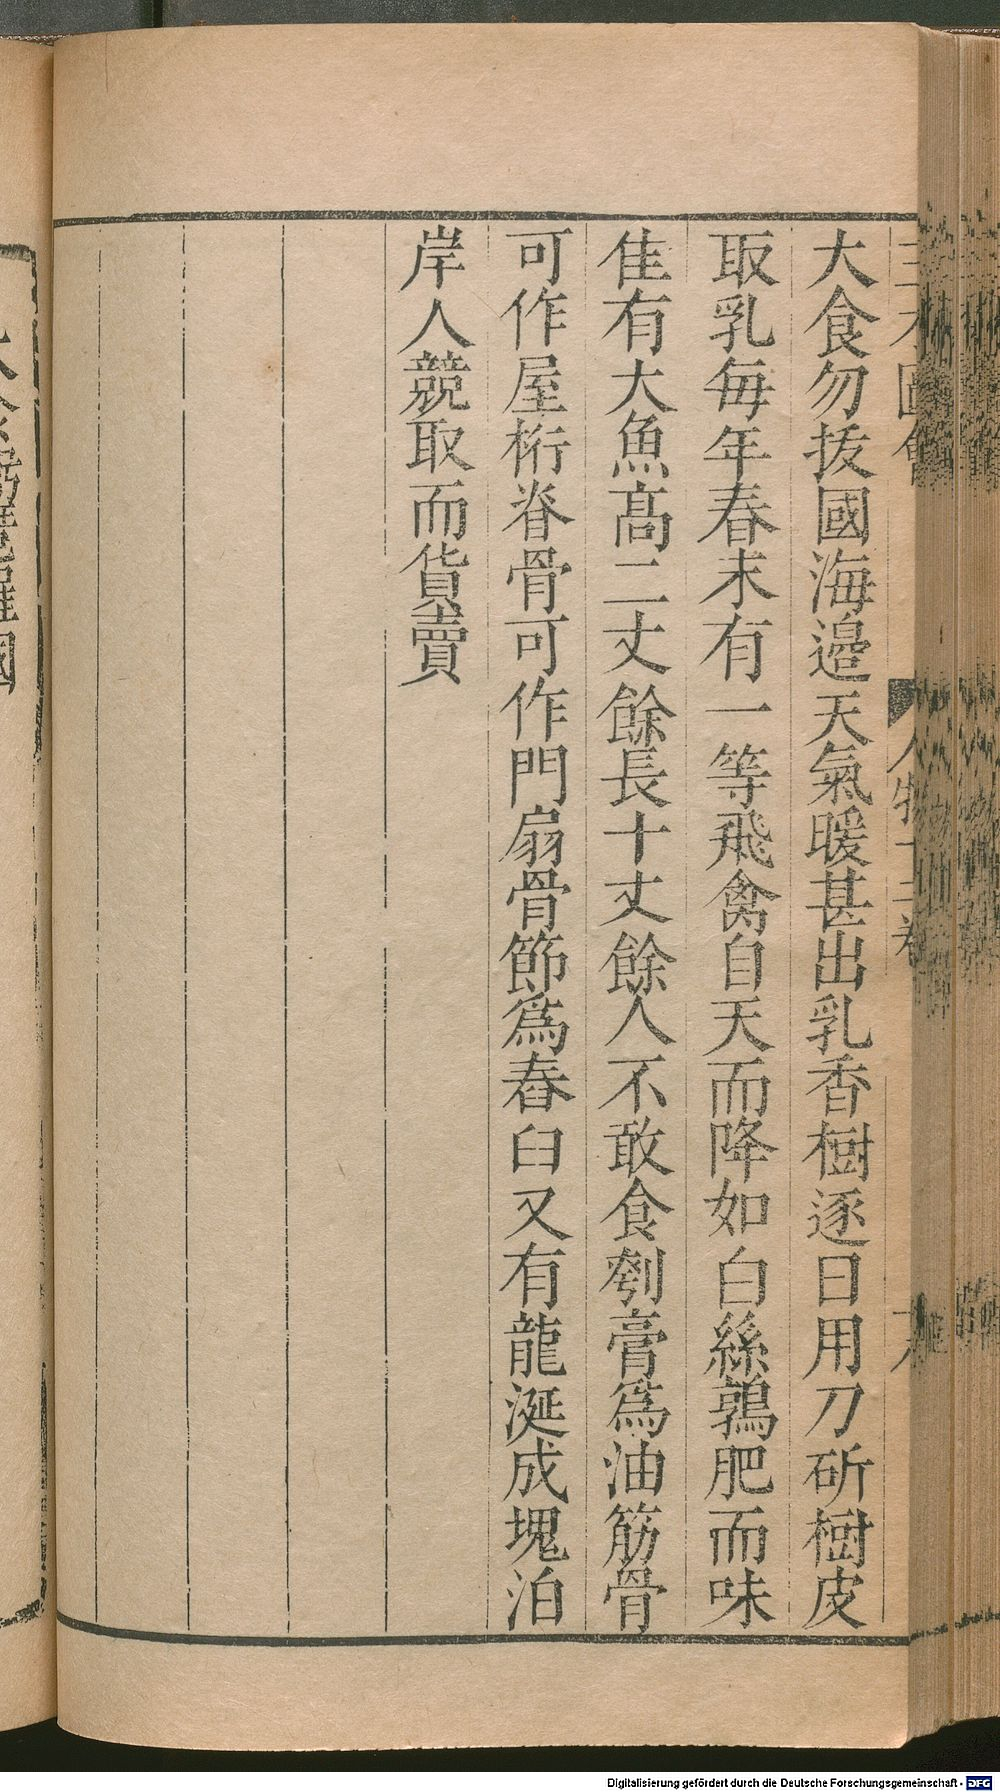 大食勿拔國海邉天氣暖甚出乳香樹逐日用刀斫樹皮
取乳每年春末有一等飛禽自天而降如白絲鶉肥而味
佳有大魚髙二丈餘長十丈餘人不敢食刳膏爲油筋骨
可作屋桁脊骨可作門扇骨節爲舂臼又有龍涎成塊泊
岸人競取而貨賣
Digitalisierung gefördert durch die Deutsche Forschungsgemeinschaft - DFG